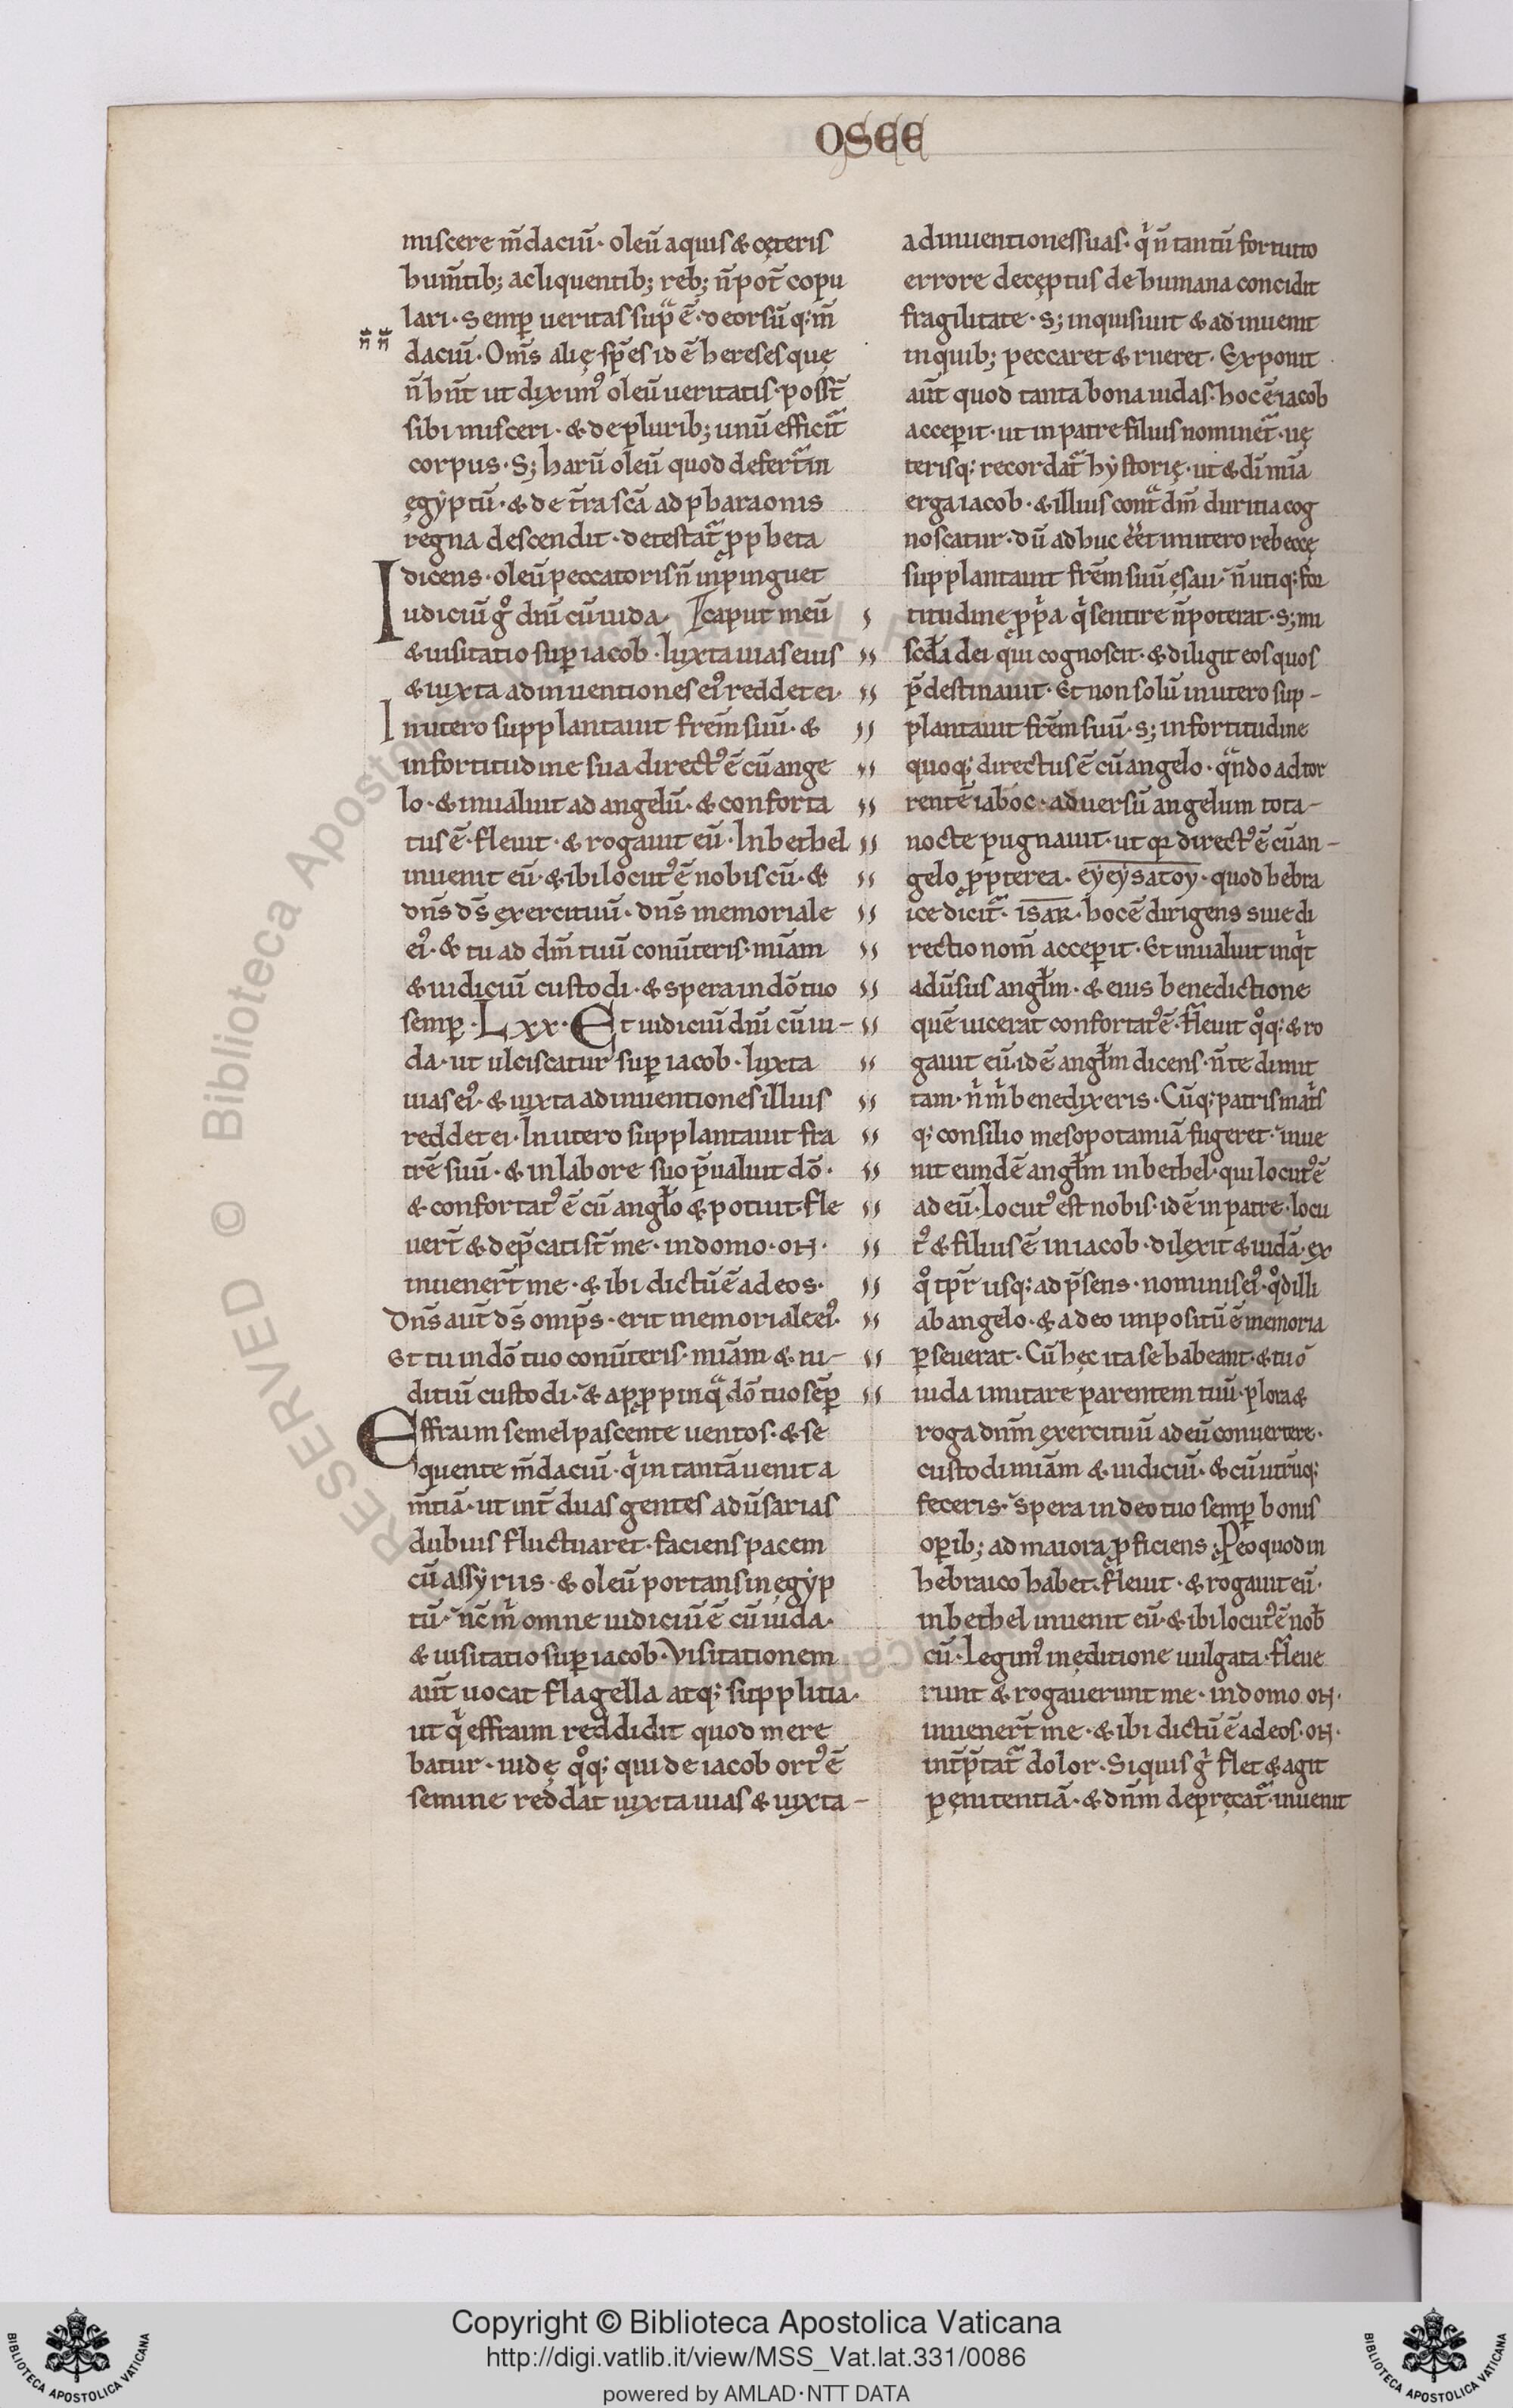 OSEE
miscere m̅daciu̅· oleu̅ aquis & cęteris
hum̅tib; ac liquentib; reb; n̅ pot̅ copu
lari· Semp̱ ueritas supᵃ e̅· deorsu̅ q; m̅
daciu̅· Om̅s alię sp̅es id e̅ hereses quę
n̅ hn̅t ut diximꝰ oleu̅ ueritatis· possᷓt
sibi misceri· & de plurib; unu̅ efficit᷑
corpus· S; haru̅ oleu̅ quod defert᷑ in
ęgẏptu̅· & de t̅ra sc̅a ad pharaonis
regna descendit· detestat᷑ ꝓpheta
dicens· oleu̅ peccatoris n̅ inpinguet
Iudiciu̅ gͦ dn̅i cu̅ iuda· caput meu̅
& uisitatio sup̱ iacob· Iuxta uias eius
& iuxta adinuentiones eiꝰ reddet ei·
In utero supplantauit fr̅em suu̅· &
in fortitudine sua directꝰ e̅ cu̅ ange
lo· & inualuit ad angelu̅· & conforta
tus e̅· fleuit· & rogauit eu̅· In bethel
inuenit eu̅· & ibi locutꝰ e̅ nobiscu̅· &
dn̅s ds̅ exercituu̅· dn̅s memoriale
eiꝰ· & tu ad dm̅ tuu̅ conu̅teris· mi̅am
& iudiciu̅ custodi· & spera in do̅ tuo
semp̱· Lxx· Et iudiciu̅ dn̅i cu̅ iu-
da· ut ulciscatur sup̱ iacob· Iuxta
uias eiꝰ· & iuxta adinuentiones illius
reddet ei· In utero supplantauit fra
tre̅ suu̅· & in labore suo p̅ualuit do̅·
& confortatꝰ e̅ cu̅ angl̅o & potuit· fle
uert̅ & dep̅cati st̅ me· in domo· oн·
inuenert̅ me· & ibi dictu̅ e̅ ad eos·
Dn̅s aut̅ ds̅ omp̅s· erit memoriale eiꝰ·
Et tu in do̅ tuo conu̅teris· mi̅am & iu-
ditiu̅ custodi· & apꝓpinqᵃ do̅ tuo se̅p̱
Effraim semel pascente uentos· & se
quente m̅daciu̅· qⁱ in tanta̅ uenit a
m̅tia̅· ut int̅ duas gentes adu̅sarias
dubius fluctuaret· faciens pacem
cu̅ assẏriis· & oleu̅ portans in ęgẏp
tu̅· nc̅ mⁱ omne iudiciu̅ e̅ cu̅ iuda·
& uisitatio sup̱ iacob· Visitationem
aut̅ uocat flagella atq; supplitia·
ut qⁱ effraim reddidit quod mere
batur· iudę qͦq; qui de iacob ortꝰ e̅
semine reddat iuxta uias & iuxta-
adinuentiones suas· qⁱ n̅ tantu̅ fortuito
errore decęptus de humana concidit
fragilitate· S; inquisiuit & adinuenit
in quib; peccaret & rueret· Exponit
aut̅ quod tanta bona iudas· hoc e̅ iacob
accep̱it· ut in patre filius nominet᷑· uę
terisq; recordat᷑ hẏstorię· ut & di̅ mi̅a
erga iacob· & illius contᵃ dm̅ duritia cog
noscatur· du̅ adhuc e̅et in utero rebeccę
supplantauit fr̅em suu̅ ęsau· n̅ utiq; for
titudine ꝓpⁱa qⁱ sentire n̅ poterat· S; mi
scd̅a dei qui cognoscit· & diligit eos quos
p̅destinauit· Et non solu̅ in utero sup-
plantauit fr̅em suu̅· S; in fortitudine
quoq; directus e̅ cu̅ angelo· qᵃndo ad tor
rente̅ iaboc· aduersu̅ angelum tota-
nocte pugnauit· ut qꝛ directꝰ e̅ cu̅ an-
gelo ꝓpterea· eẏeẏsatoẏ· quod hebra
ice dicit᷑· isar· hoc e̅ dirigens siue di
rectio nom̅ accep̱it· Et inualuit inqⁱt
adu̅sus angl̅m· & eius benedictione
que̅ uicerat confortatꝰ e̅· Fleuit qͦq; & ro
gauit eu̅· id e̅ angl̅m dicens· n̅ te dimit
tam· nⁱ mⁱ benedixeris· Cu̅q; patris matⁱs
q; consilio mesopotamia̅ fugeret· inue
nit eunde̅ angl̅m in bethel· qui locutꝰ e̅
ad eu̅· Locutꝰ est nobis· id e̅ in patre· locu
tꝰ & filius e̅ in iacob· dilexit & iuda̅· ex
qͦ tp̅r usq; ad p̅sens· nominis eiꝰ· qͦd illi
ab angelo· & a deo impositu̅ e̅ memoria
p̱seuerat· Cu̅ hęc ita se habeant· & tu o̅
iuda imitare parentem tuu̅· plora &
roga dn̅m exercituu̅ ad eu̅ conuertere·
custodi mi̅am & iudiciu̅· & cu̅ utru̅q;
feceris· Spera in deo tuo semp̱ bonis
op̱ib; ad maiora ꝓficiens; Peo quod in
hebraico habet· fleuit· & rogauit eu̅·
in bethel inuenit eu̅· & ibi locutꝰ e̅ nob̅
cu̅· Legimꝰ in editione uulgata· fleue
runt & rogauerunt me· in domo oн·
inuenert̅ me· & ibi dictu̅ e̅ ad eos· oн·
int̅p̅tat᷑ dolor· Siquis gⁱ flet & agit
pęnitentia̅· & dn̅m deprecat᷑· inuenit
Copyright © Biblioteca Apostolica Vaticana
http://digi.vatlib.it/view/MSS_Vat.lat.331/0086
powered by AMLAD·NTT DATA